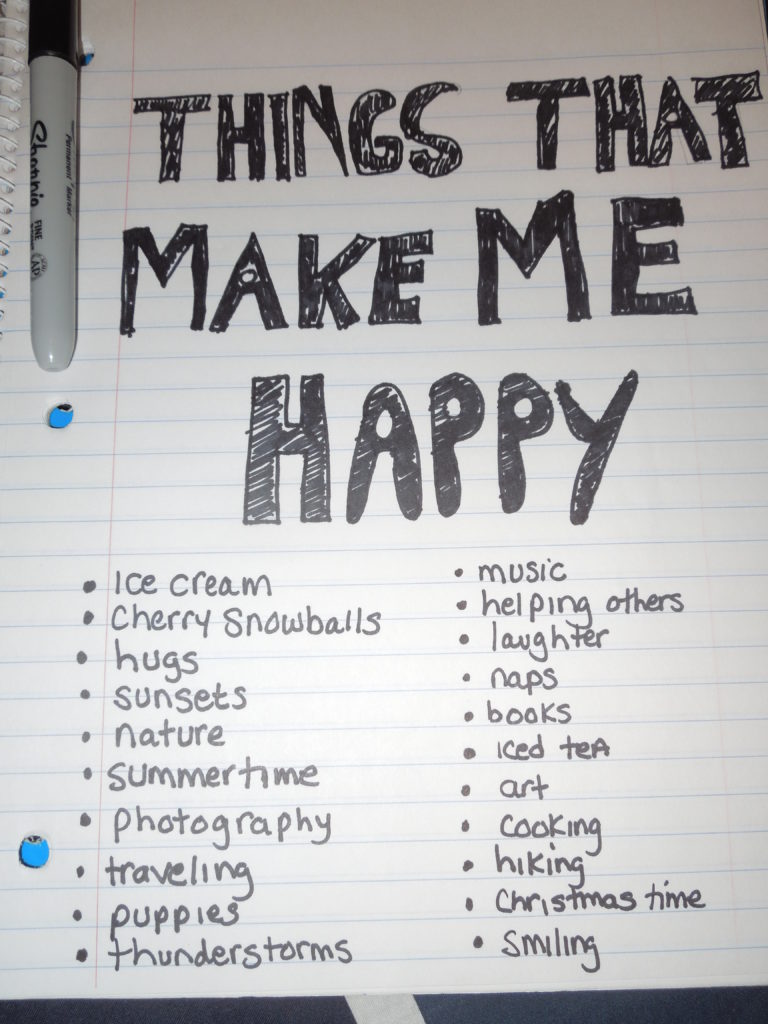 THINGS THAT
MAKE ME
HAPPY
• Ice cream
• Cherry Snowballs
• hugs
• sunsets
• nature
• summertime
• photography
• traveling
• puppies
• thunderstorms
• music
• helping others
• laughter
• naps
• books
• Iced teA
• art
• cooking
• hiking
• Christmas time
• Smiling
Permanent Marker
FINE
AP